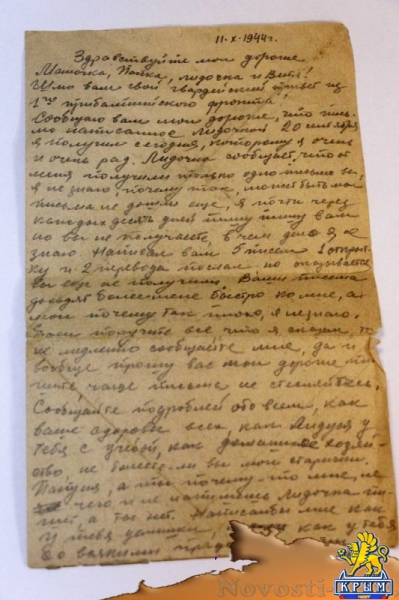 11.X.1944г.
Здравствуйте мои дорогие
Мамочка, Папка, Лидочка и Витя!
Шлю вам свой гвардейский привет из
1го прибалтийского фронта!
Сообщаю вам мои дорогие, что пись-
мо написанное Лидочкой 20 сентября
я получил сегодня, которому я очень
и очень рад. Лидочка сообщает, что от
меня получили только одно письмо
я не знаю, почему так, может быть мои
письма не дошли ещё, я почти через
каждых десять дней пишу вам
но вы не получаете, в чем дело я не
знаю. Написал вам 5 писем 1 открыт-
ку и 2 перевода послал но оказывается
вы еще не получили. Ваши письма
доходят более-менее быстро ко мне, а
мои почему так плохо, я не знаю.
Если получите все что я сказал, то
не медленно сообщайте мне, да и
вообще прошу вас мои дорогие пи-
шите чаще письма не стесняйтесь.
Сообщайте подробней обо всем, как
ваше здоровье всех, как Лидуся у
тебя с учебой, как домашнее хозяй-
ство, не болеете-ли вы мои старики.
Папуся, а ты почему-то мне, не
чего и не напишешь Лидочка пи-
шет, а ты нет. Написал бы мне как
у тебя делишки, как у тебя
со
Novosti-
КРЫМ